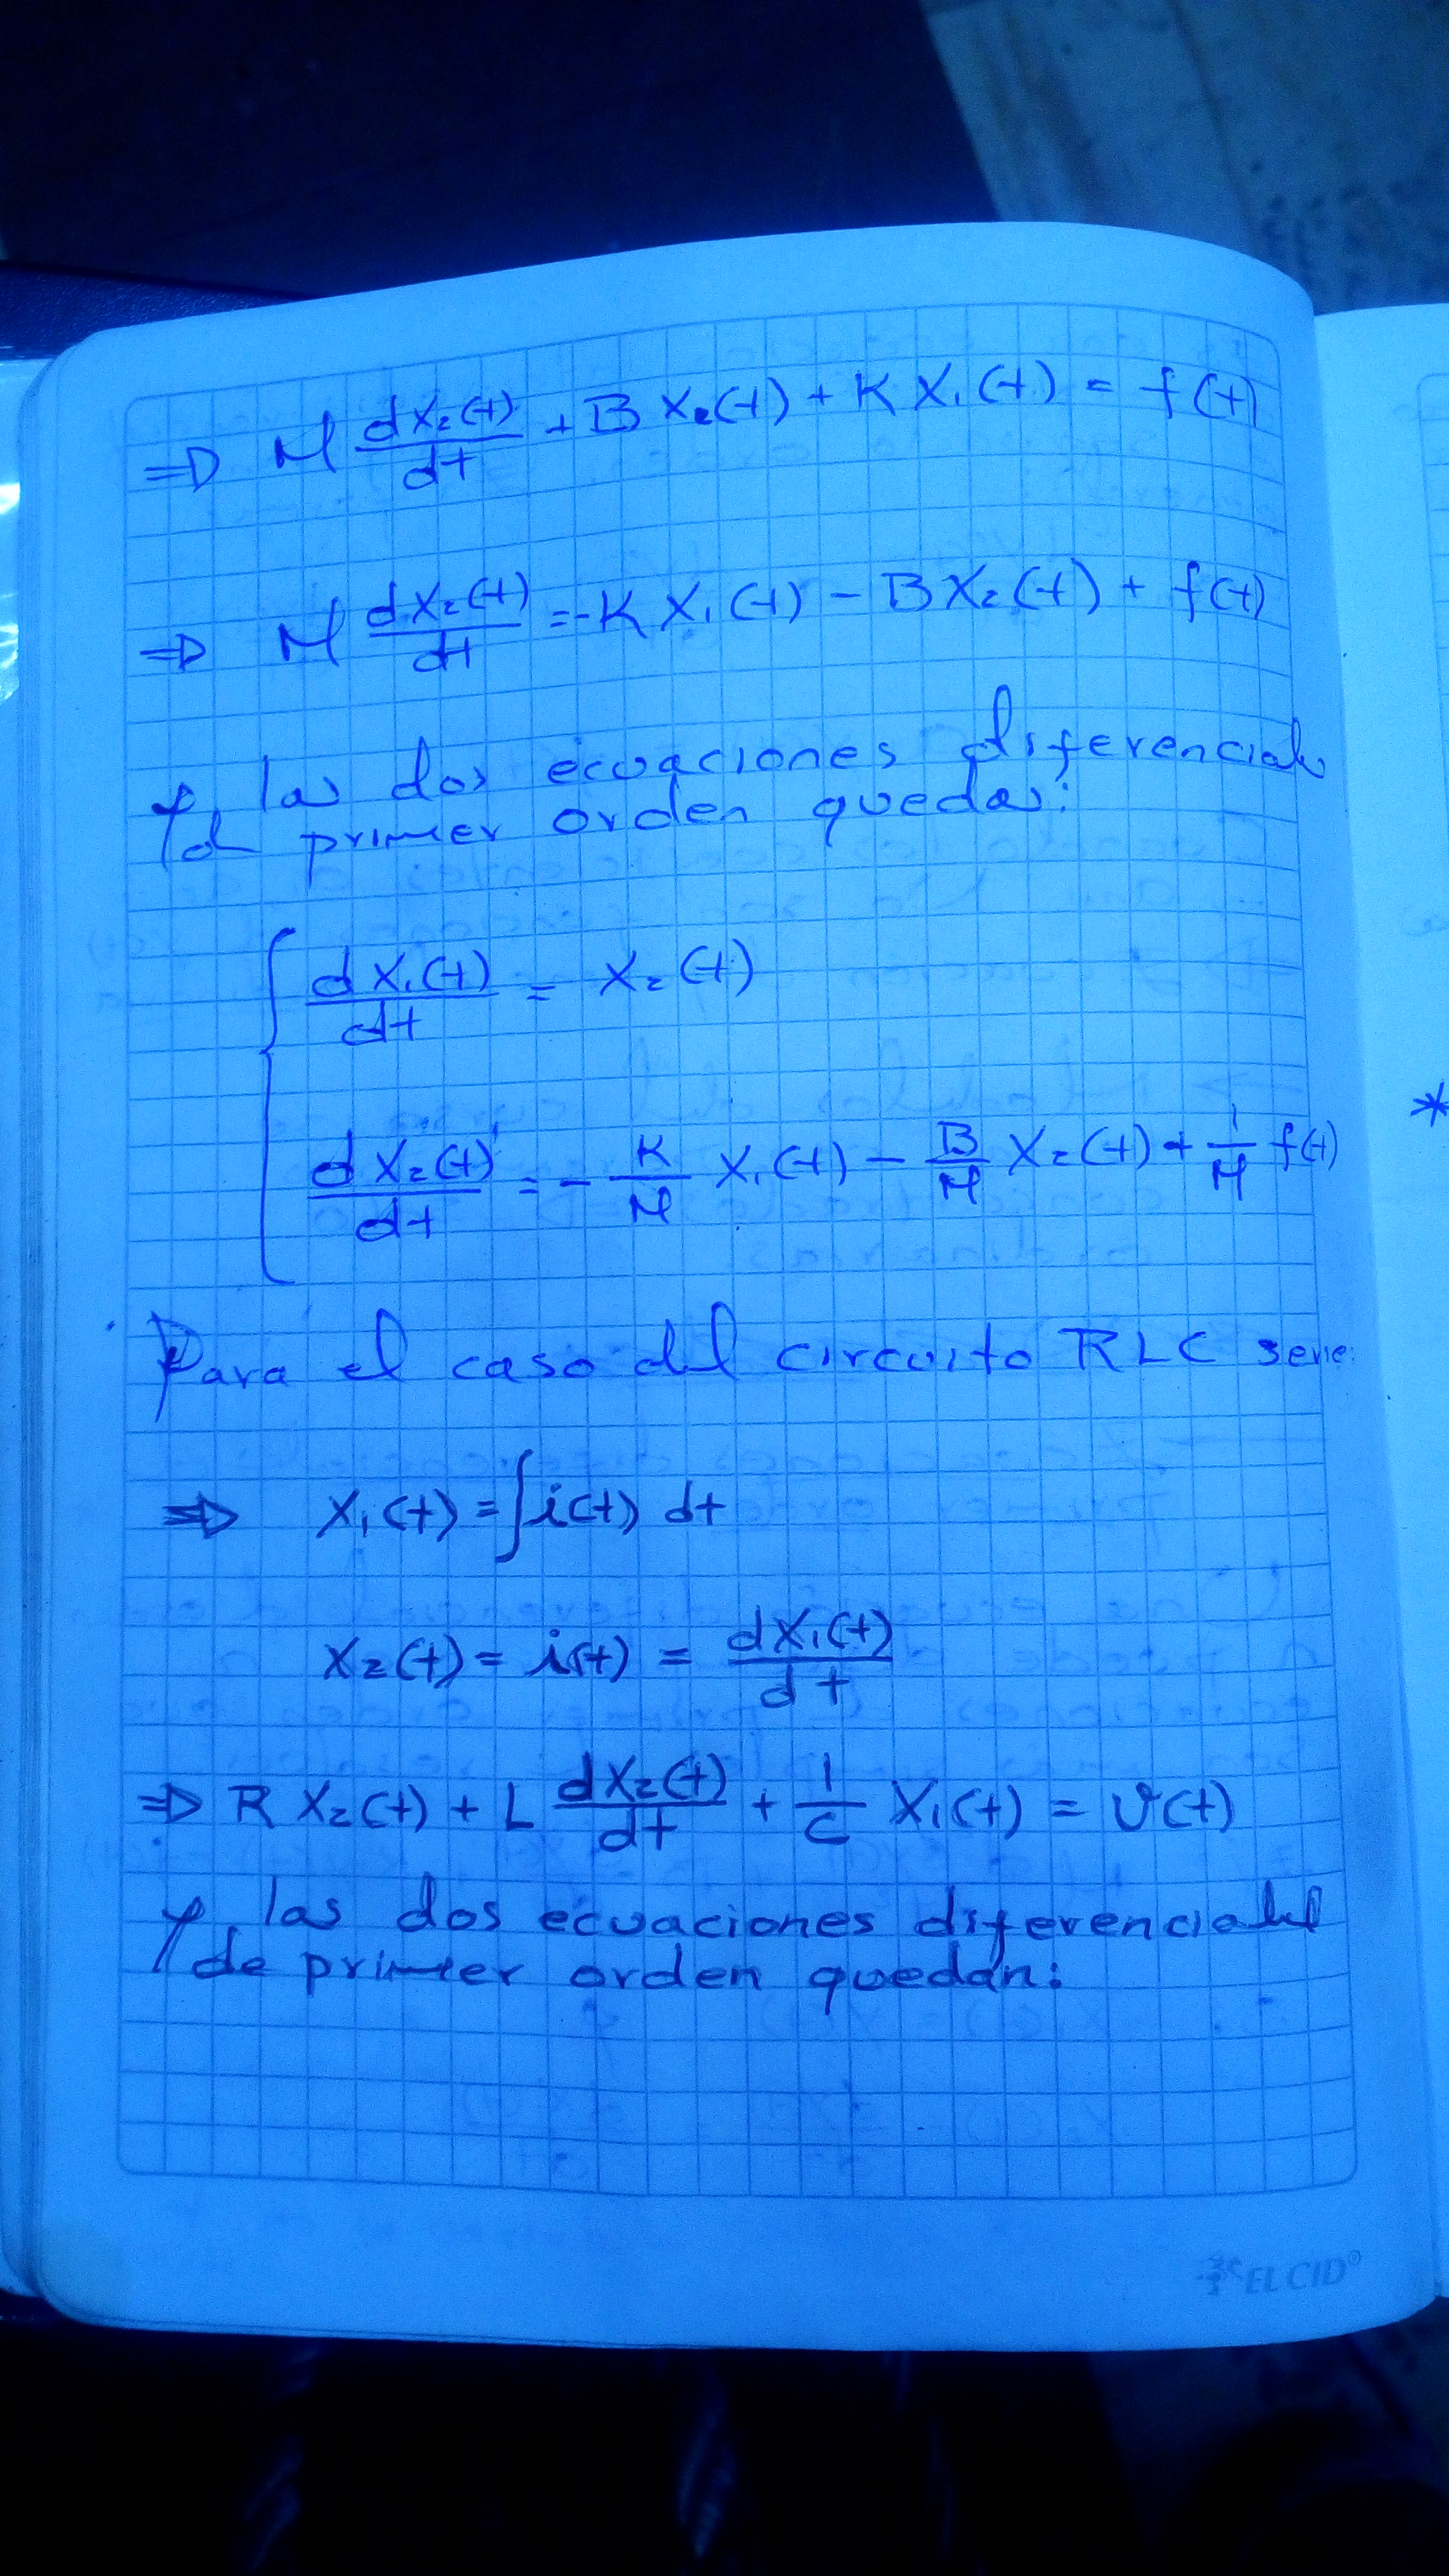 ⇒ M dx₂(t)/dt + B x₂(t) + K x₁(t) = f(t)
⇒ M dx₂(t)/dt = -K x₁(t) - B x₂(t) + f(t)
y las dos ecuaciones diferenciales
de primer orden quedan:
{ dx₁(t)/dt = x₂(t)
dx₂(t)/dt = - K/M x₁(t) - B/M x₂(t) + 1/M f(t)
Para el caso del circuito RLC serie:
⇒ x₁(t) = ∫i(t) dt
x₂(t) = i(t) = dx₁(t)/dt
⇒ R x₂(t) + L dx₂(t)/dt + 1/C x₁(t) = v(t)
y las dos ecuaciones diferenciales
de primer orden quedan:
*
EL CID®